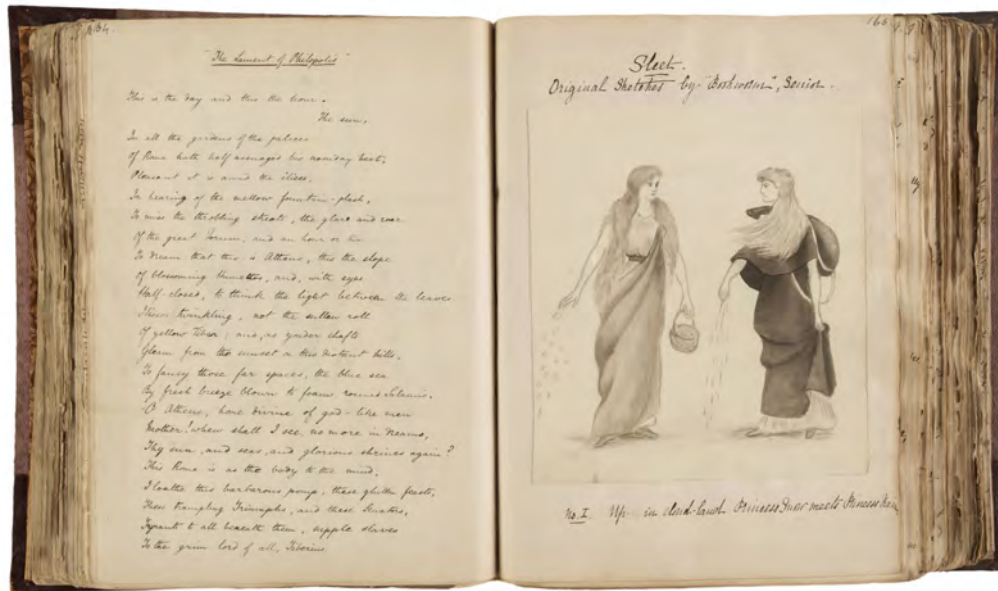 164.
"The Lament of Philopolis"
This is the day and this the hour.
The sun,
In all the gardens of the palaces
Of Rome hath half assuaged his noonday heat,
Pleasant it is amid the ilices,
In hearing of the mellow fountain-plash,
To miss the throbbing streets, the glare and roar
Of the great Forum, and an hour or two
To dream that this is Athens, this the slope
Of blossoming Hymettus, and, with eyes
Half-closed, to think the light between the leaves
Ilissus twinkling, not the sullen roll
Of yellow Tiber; and, as yonder shafts
Gleam from the sunset on the distant hills,
To fancy those far spaces, the blue sea
By fresh breeze blown to foam round Salamis.
O Athens, hive divine of god-like men
Mother! when shall I see, no more in dreams,
Thy sun, and seas, and glorious shrines again?
This Rome is as the body to the mind,
I loathe this barbarous pomp, these glutton feasts,
These trampling Triumphs, and these Senators,
Tyrants to all beneath them, supple slaves
To the grim lord of all, Tiberius.
165
Sleet.
Original Sketches by "Bookworm", Senior.
No. I. Up in cloud-land Princess Snow meets Princess Rain